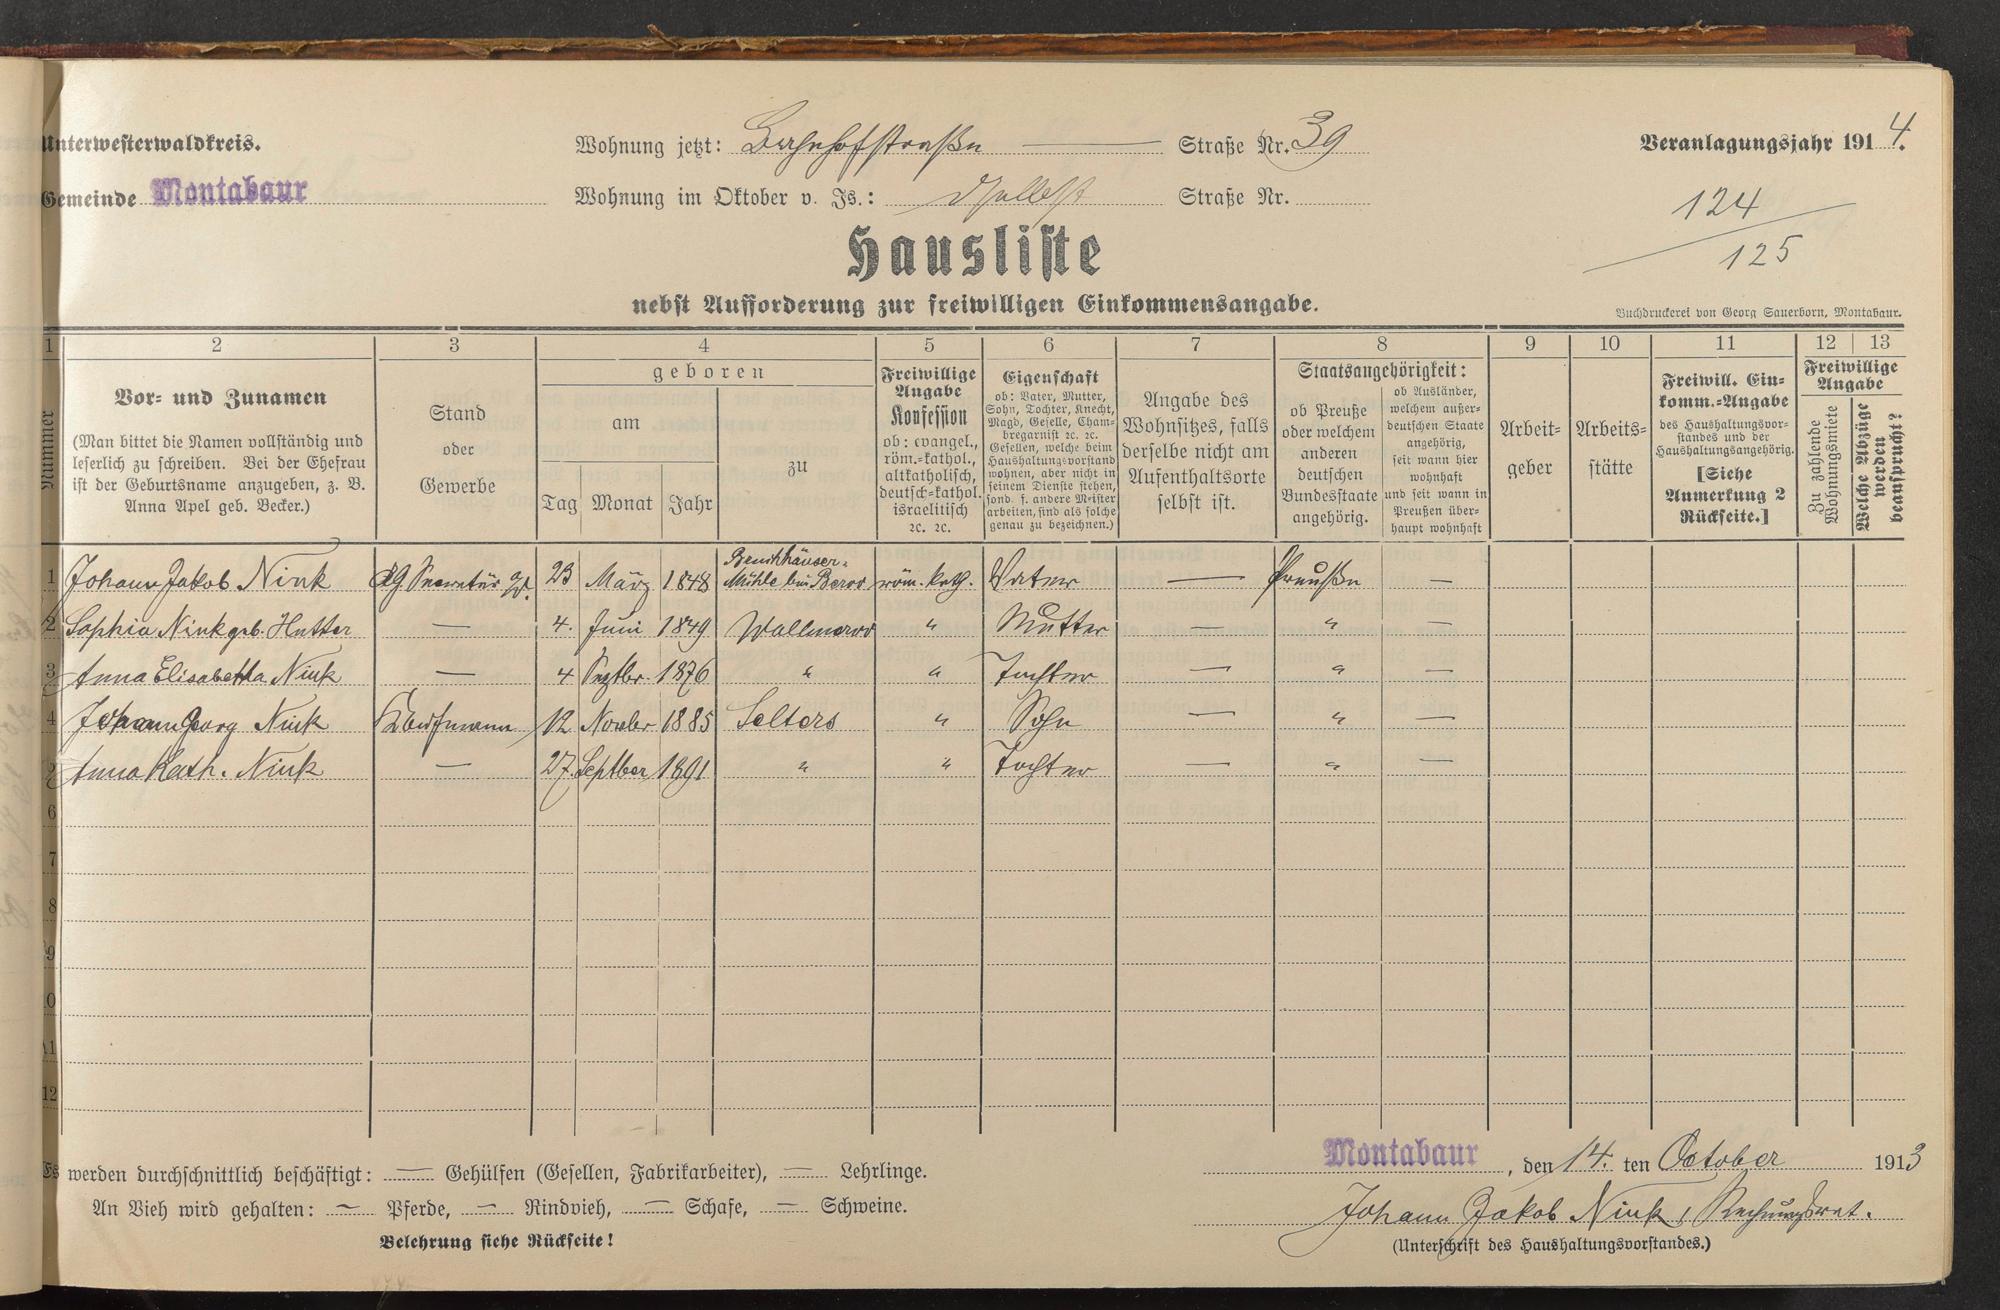 Unterwesterwaldkreis.
Wohnung jetzt: Bahnhofstraße — Straße Nr. 39
Veranlagungsjahr 1914.
Gemeinde Montabaur
Wohnung im Oktober v. Js.: daselbst Straße Nr.
124
125
Hausliste
nebst Aufforderung zur freiwilligen Einkommensangabe.
Buchdruckerei von Georg Sauerborn, Montabaur.
1 2 3 4 5 6 7 8 9 10 11 12 13
Nummer
Vor- und Zunamen
(Man bittet die Namen vollständig und
leserlich zu schreiben. Bei der Ehefrau
ist der Geburtsname anzugeben, z. B.
Anna Apel geb. Becker.)
Stand
oder
Gewerbe
geboren
am
Tag Monat Jahr
zu
Freiwillige
Angabe
Konfession
ob: evangel.,
röm.-kathol.,
altkatholisch,
deutsch-kathol.
israelitisch
ꝛc. ꝛc.
Eigenschaft
ob: Vater, Mutter,
Sohn, Tochter, Knecht,
Magd, Geselle, Cham-
bregarnist ꝛc. ꝛc.
Gesellen, welche beim
Haushaltungsvorstand
wohnen, aber nicht in
seinem Dienste stehen,
sond. f. andere Meister
arbeiten, sind als solche
genau zu bezeichnen.)
Angabe des
Wohnsitzes, falls
derselbe nicht am
Aufenthaltsorte
selbst ist.
Staatsangehörigkeit:
ob Preuße
oder welchem
anderen
deutschen
Bundesstaate
angehörig.
ob Ausländer,
welchem außer-
deutschen Staate
angehörig,
seit wann hier
wohnhaft
und seit wann in
Preußen über-
haupt wohnhaft
Arbeit-
geber
Arbeits-
stätte
Freiwill. Ein-
komm.-Angabe
des Haushaltungsvor-
standes und der
Haushaltungsangehörig.
[Siehe
Anmerkung 2
Rückseite.]
Freiwillige
Angabe
Zu zahlende
Wohnungsmiete
Welche Abzüge
werden
beansprucht?
1 Johann Jakob Nink AG Secretär 23 März 1848 Bruchhäuser-
Mühle bei Berod röm. kath. Vater — Preuße —
2 Sophia Nink geb. Hutter — 4. Juni 1849 Wallmerod " Mutter — " —
3 Anna Elisabetha Nink — 4 Septbr. 1876 " " Tochter — " —
4 Johann Georg Nink Kaufmann 12 Novbr 1885 Selters " Sohn — " —
5 Anna Kath. Nink — 27. Septber 1891 " " Tochter — " —
6
7
8
9
10
11
12
Es werden durchschnittlich beschäftigt: — Gehülfen (Gesellen, Fabrikarbeiter), — Lehrlinge.
Montabaur, den 14. ten October 1913
An Vieh wird gehalten: — Pferde, — Rindvieh, — Schafe, — Schweine.
Johann Jakob Nink, Rechnungsrat.
Belehrung siehe Rückseite!
(Unterschrift des Haushaltungsvorstandes.)